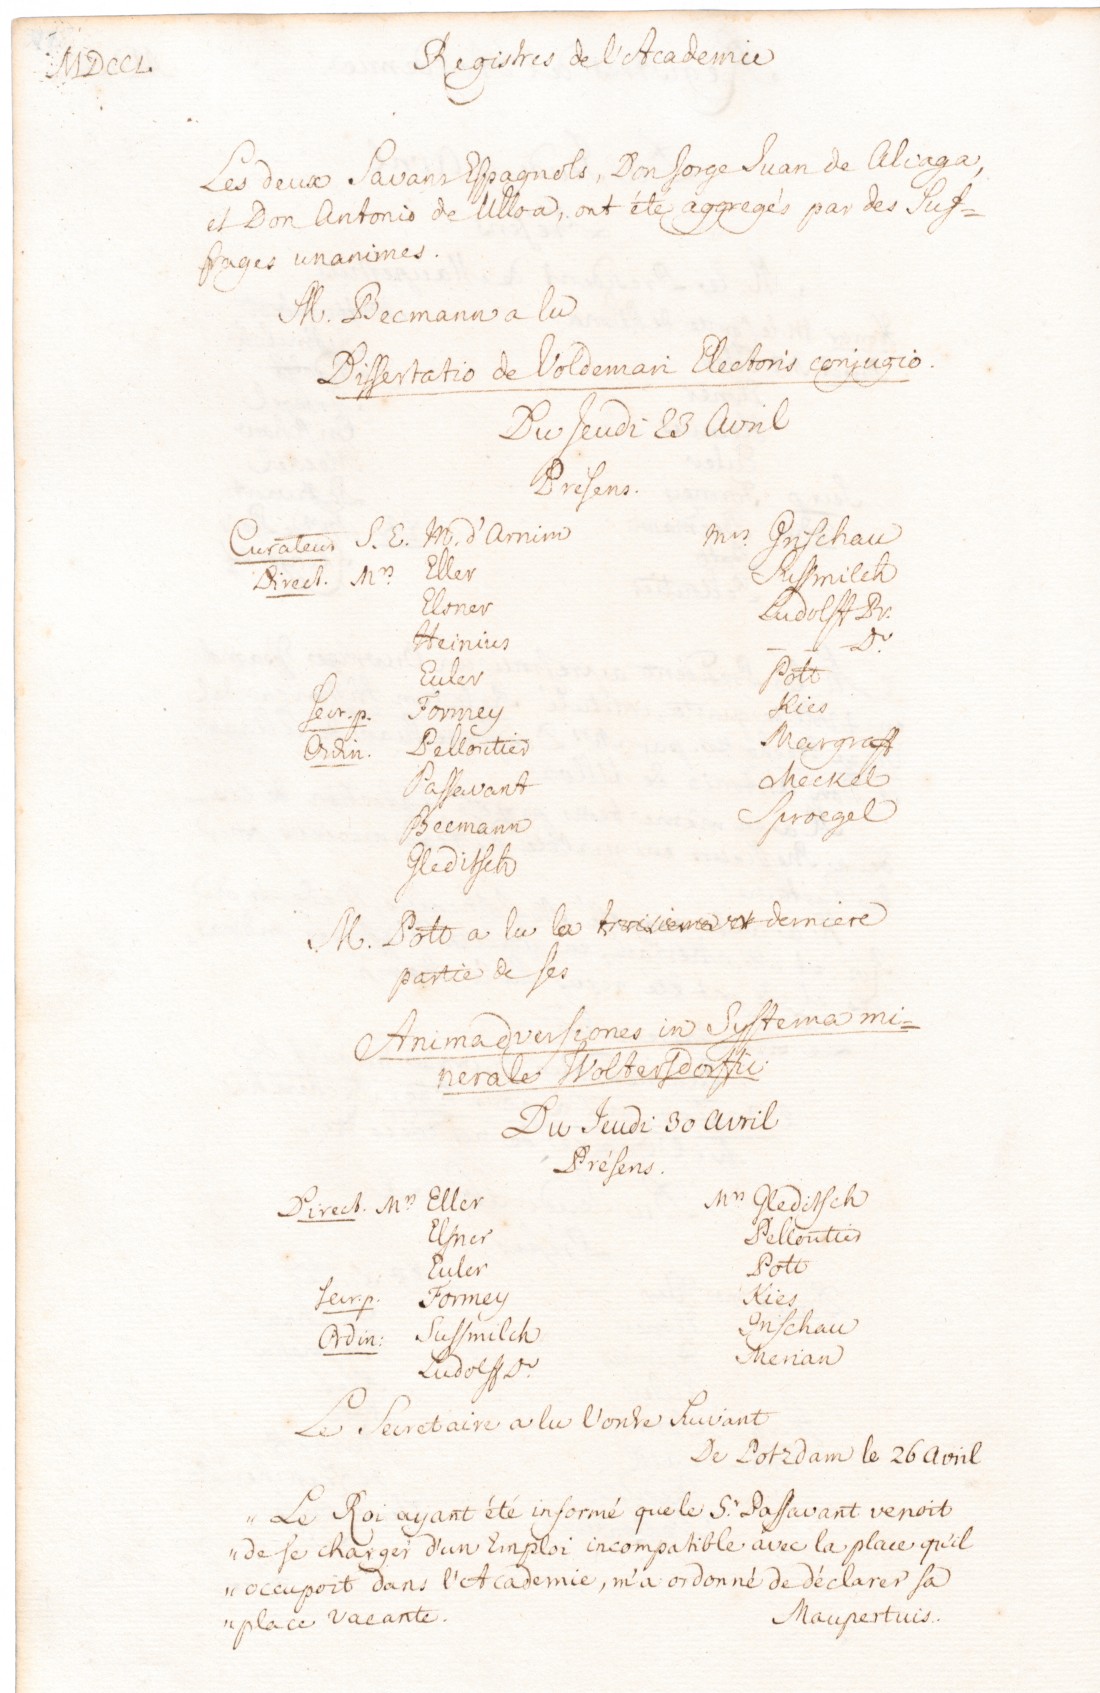 MDCCL.
Registres de l'Academie
Les deux Savans Espagnols, Don Jorge Juan de Aliaga,
et Don Antonio de Ulloa, ont été aggregés par des Suf=
frages unanimes.
M. Becmann a lu
Dissertatio de Voldemari Electoris conjugio.
Du Jeudi 23 Avril
Présens.
Curateur S. E. M. d'Arnim
Direct. Mrs Eller
Elsner
Heinius
Euler
Secr. p. Formey
Ordin. Pelloutier
Passavant
Becmann
Gleditsch
Mrs Grischau
Sussmilch
Ludolff Pr.
_ _ _ Dr
Pott
Kies
Margraff
Meckel
Sproegel
M. Pott a lu la derniere
partie de ses
Animadversiones in Systema mi=
nerale Woltersdorffii.
Du Jeudi 30 Avril
Présens.
Direct. Mrs Eller
Elsner
Euler
Secr. p. Formey
Ordin: Sussmilch
Ludolff Dr
Mrs Gleditsch
Pelloutier
Pott
Kies
Grischau
Merian
Le Secretaire a lu l'ordre Suivant
De Potzdam le 26 Avril
" Le Roi ayant été informé que le Sr Passavant venoit
" de se charger d'un Emploi incompatible avec la place qu'il
" occupoit dans l'Academie, m'a ordonné de déclarer sa
" place vacante. Maupertuis.